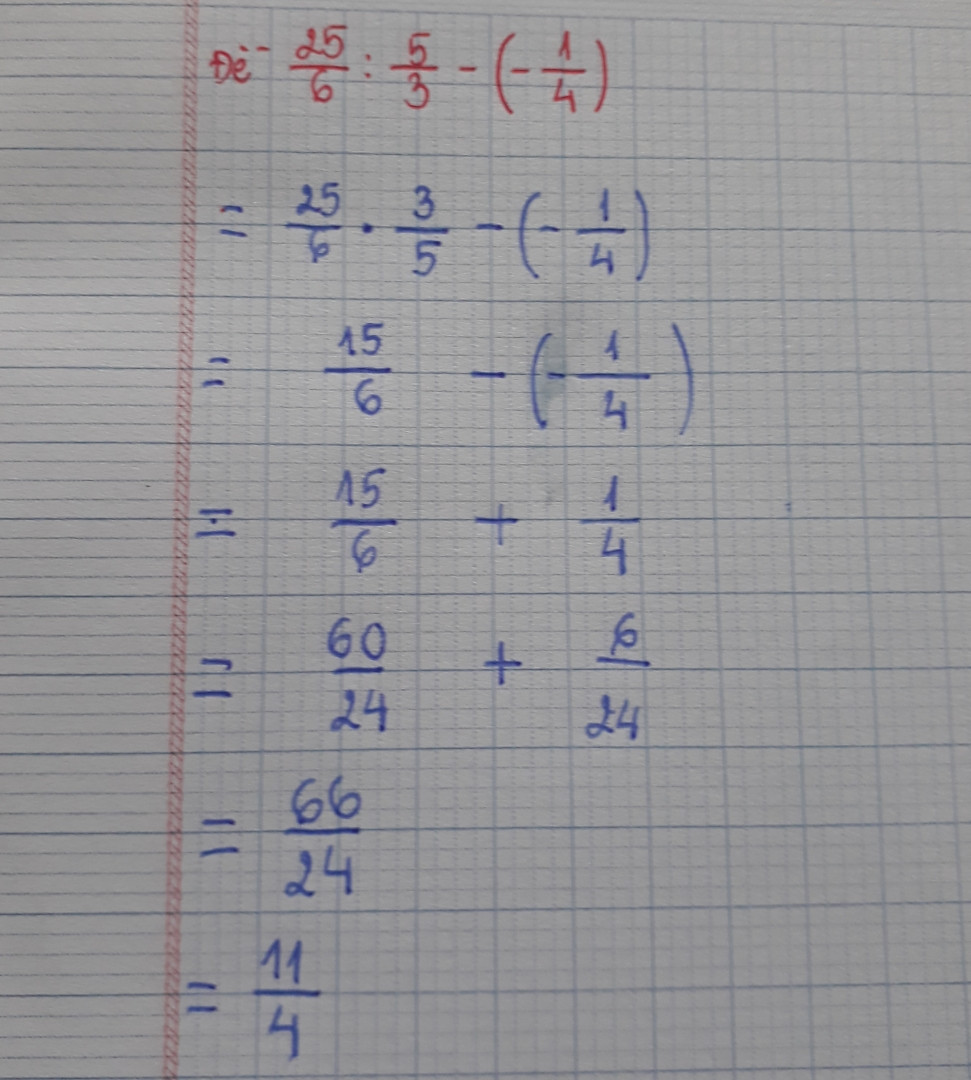 Đề 25/6 : 5/3 - (-1/4)
= 25/6 . 3/5 - (-1/4)
= 15/6 - (-1/4)
= 15/6 + 1/4
= 60/24 + 6/24
= 66/24
= 11/4